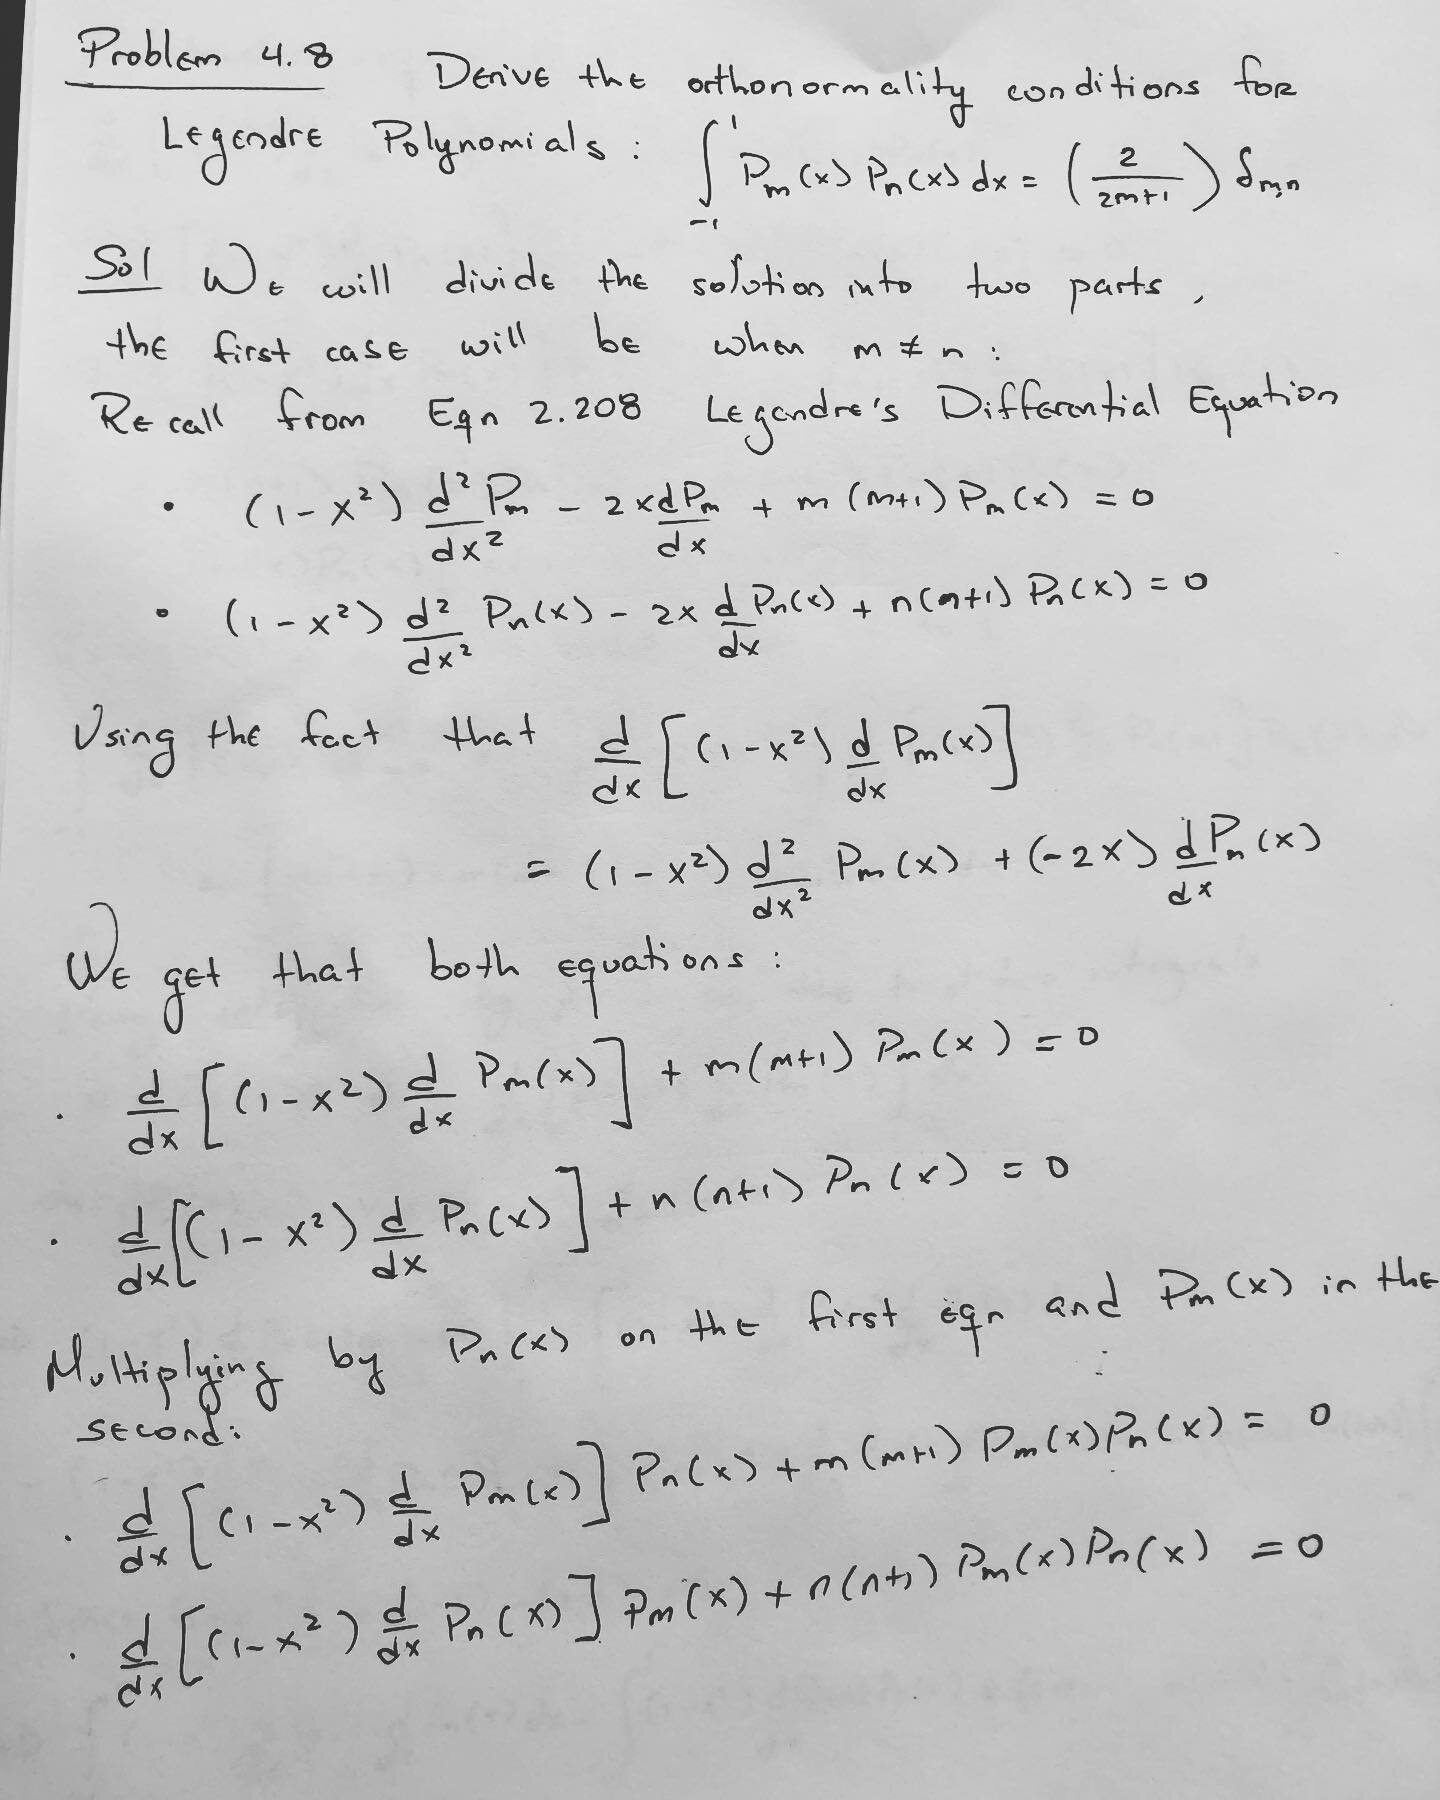 Problem 4.8 Derive the orthonormality conditions for
Legendre Polynomials: ∫_{-1}^{1} P_m(x) P_n(x) dx = (2/(2m+1)) δ_{m,n}
Sol We will divide the solution into two parts,
the first case will be when m ≠ n:
Recall from Eqn 2.208 Legendre's Differential Equation
• (1-x²) d²P_m/dx² - 2x dP_m/dx + m(m+1) P_m(x) = 0
• (1-x²) d²/dx² P_n(x) - 2x d/dx P_n(x) + n(n+1) P_n(x) = 0
Using the fact that d/dx [(1-x²) d/dx P_m(x)]
= (1-x²) d²/dx² P_m(x) + (-2x) dP_n/dx (x)
We get that both equations:
• d/dx [(1-x²) d/dx P_m(x)] + m(m+1) P_m(x) = 0
• d/dx [(1-x²) d/dx P_n(x)] + n(n+1) P_n(x) = 0
Multiplying by P_n(x) on the first eqn and P_m(x) in the
second:
• d/dx [(1-x²) d/dx P_m(x)] P_n(x) + m(m+1) P_m(x) P_n(x) = 0
• d/dx [(1-x²) d/dx P_n(x)] P_m(x) + n(n+1) P_m(x) P_n(x) = 0